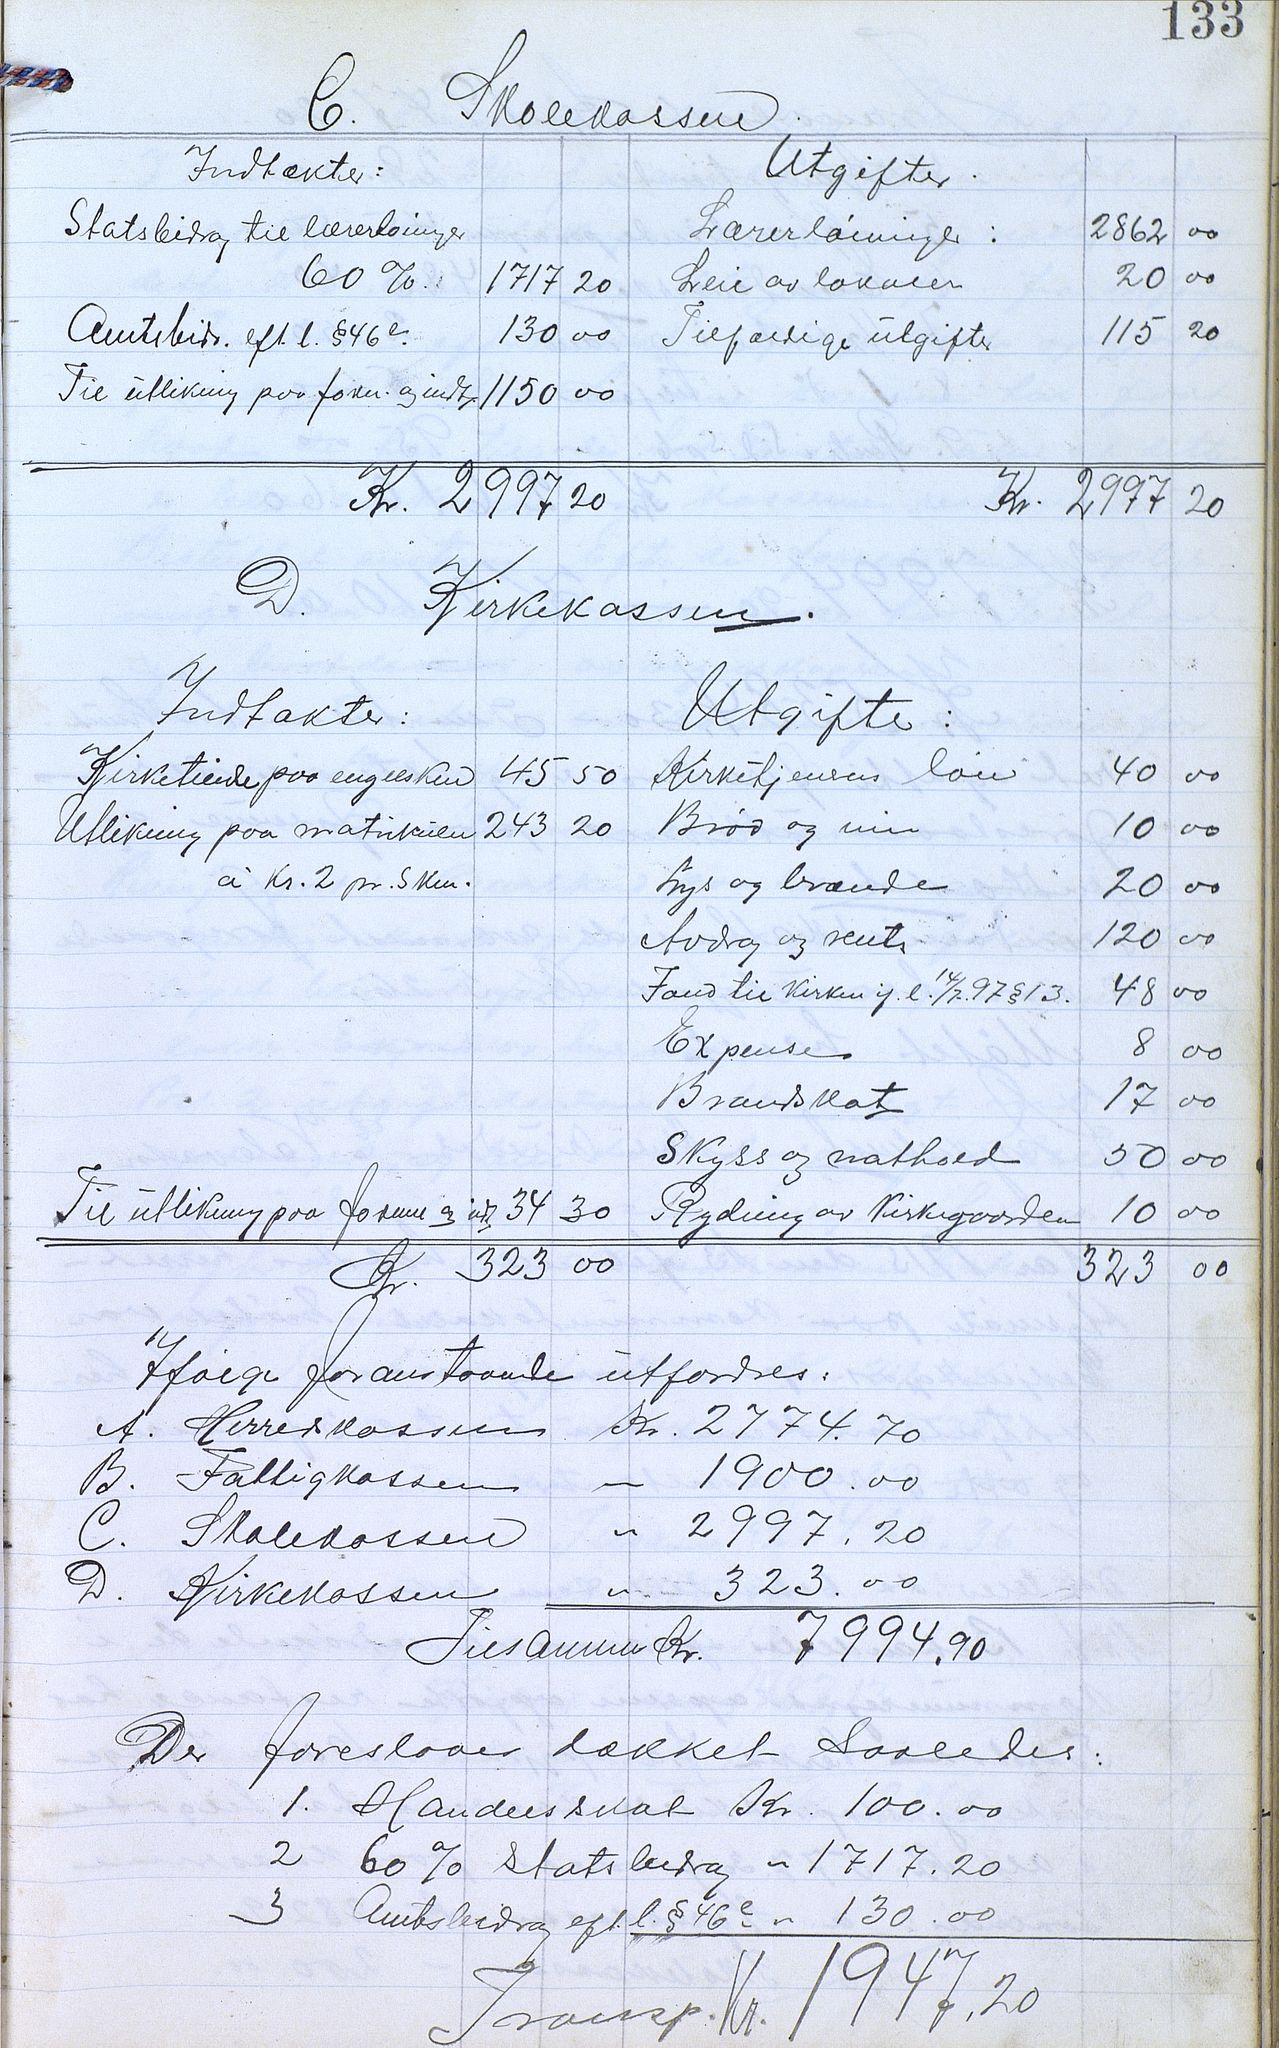 133
C. Skolekassen.
Indtækter: Utgifter.
Statsbidrag til lærerlöninger Lærerlöninger: 2862 00
60 %. 1717 20 Leie av lokaler 20 00
Amtsbidr. eft. l. § 46 e. 130 00 Tilfældige utgifter 115 20
Til utlikning paa form. og indt. 1150 00
Kr. 2997 20 Kr. 2997 20
D. Kirkekassen.
Indtækter: Utgifter:
Kirketiende paa engelsken 45 50 Kirketjenerens løn 40 00
Utlikning paa matrikulen 243 20 Brød og vin 10 00
à Kr. 2 pr. Skm. Lys og brænde 20 00
Avdrag og renter 120 00
Fond til kirken if. l. 14/7.97 § 13. 48 00
Expenser 8 00
Brandskat 17 00
Skyss og nathold 50 00
Til utlikning paa formue og indt. 34 30 Rydning av kirkegaarden 10 00
Kr. 323 00 323 00
Ifølge foranstaaende utfordres:
A. Herredskassen Kr. 2774.70
B. Fattigkassen " 1900.00
C. Skolekassen " 2997.20
D. Kirkekassen " 323.00
Tilsammen Kr. 7994.90
Der foreslaaes dækket saaledes:
1. Handelsskat Kr. 100.00
2 60 % Statsbidrag " 1717.20
3 Amtsbidrag eft. l. § 46 e " 130.00
Transp. Kr. 1947.20